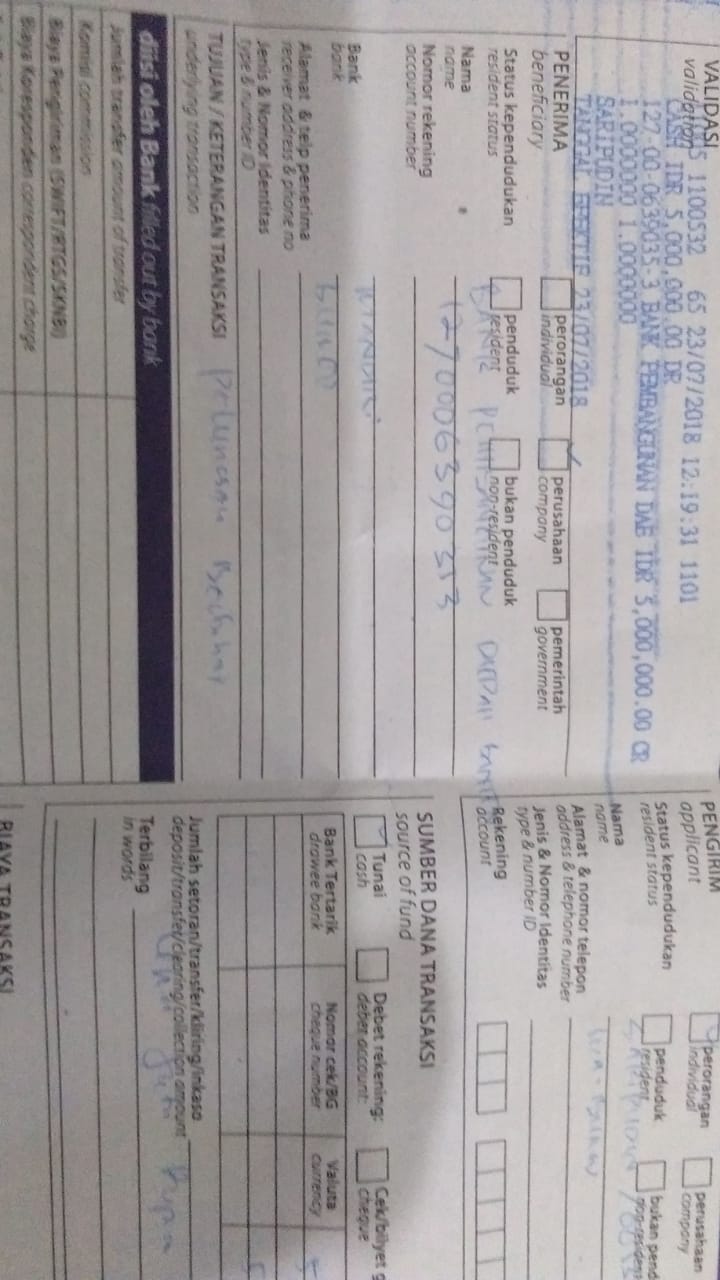 VALIDASI
validation
5 1100532 65 23/07/2018 12:19:31 1101
CASH IDR 5,000,000.00 DR
127-00-0639035-3 BANK PEMBANGUNAN DAE IDR 5,000,000.00 CR
1.0000000 1.0000000
SARIPUDIN
TANGGAL EFEKTIF 23/07/2018
PENERIMA
beneficiary
perorangan
individual
perusahaan
company
pemerintah
government
Status kependudukan
resident status
penduduk
resident
bukan penduduk
non-resident
Nama
name
BANK
Nomor rekening
account number
1270006390353
Bank
bank
MANDIRI
Alamat & telp penerima
receiver address & phone no
Jenis & Nomor Identitas
type & number ID
TUJUAN / KETERANGAN TRANSAKSI
underlying transaction
diisi oleh Bank filled out by bank
Jumlah transfer amount of transfer
Komisi commission
Biaya Pengiriman (SWIFT/RTGS/SKNBI)
Biaya Koresponden correspondent charge
PENGIRIM
applicant
perorangan
individual
perusahaan
company
Status kependudukan
resident status
penduduk
resident
bukan pend
non-resident
Nama
name
Alamat & nomor telepon
address & telephone number
Jenis & Nomor Identitas
type & number ID
Rekening
account
SUMBER DANA TRANSAKSI
source of fund
Tunai
cash
Debet rekening:
debet account:
Cek/bilyet g
cheque
Bank Tertarik
drawee bank
Nomor cek/BG
cheque number
Valuta
currency
Jumlah setoran/transfer/kliring/inkaso
deposit/transfer/clearing/collection amount
Terbilang
in words
BIAYA TRANSAKSI